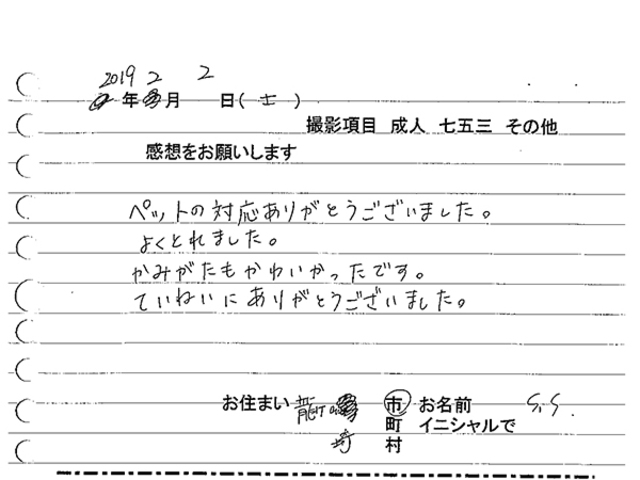 2019 2 2
年 月 日(土)
撮影項目 成人 七五三 その他
感想をお願いします
ペットの対応ありがとうございました。
よくとれました。
かみがたもかわいかったです。
ていねいにありがとうございました。
お住まい 龍 市 お名前 S.S.
町 イニシャルで
崎 村